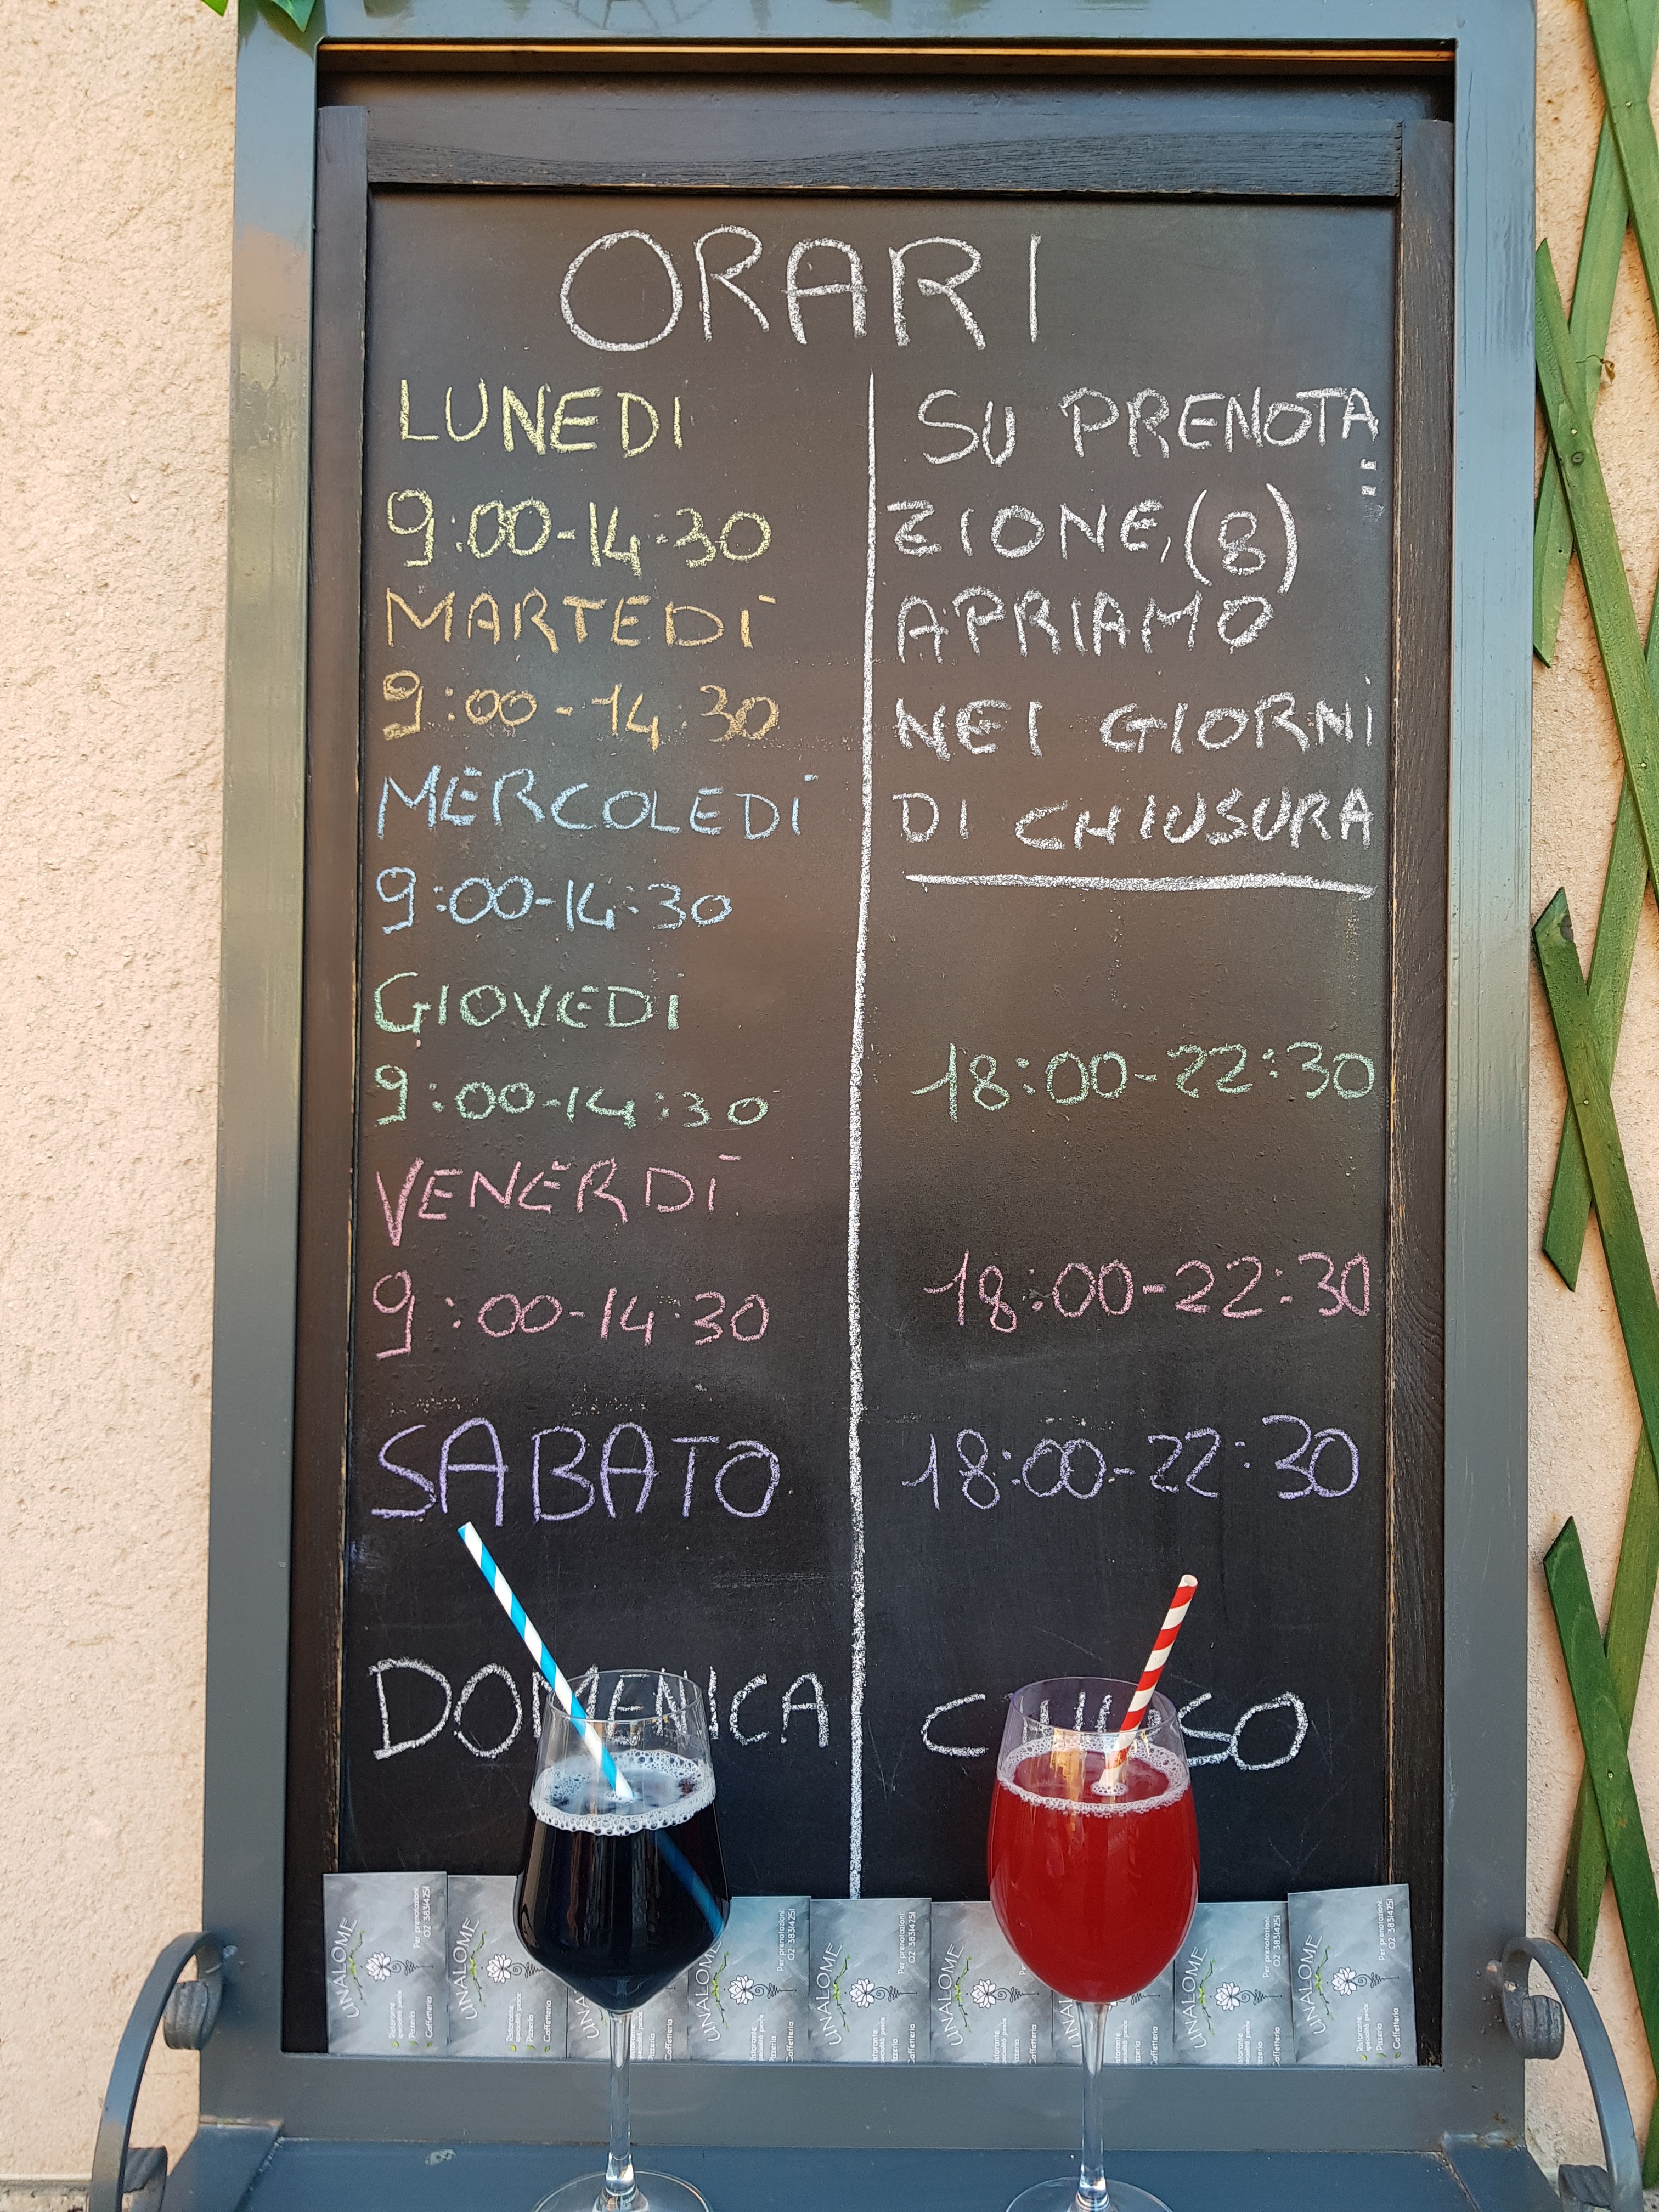 ORARI
LUNEDI
9:00-14:30
MARTEDÌ
9:00-14:30
MERCOLEDÌ
9:00-14:30
GIOVEDI
9:00-14:30
VENERDÌ
9:00-14:30
SABATO
DOMENICA
SU PRENOTA
ZIONE,(8)
APRIAMO
NEI GIORNI
DI CHIUSURA
18:00-22:30
18:00-22:30
18:00-22:30
CHIUSO
UNALOME
Per prenotazioni:
02 38314251
Ristorante
specialità pesce
Pizzeria
Caffetteria